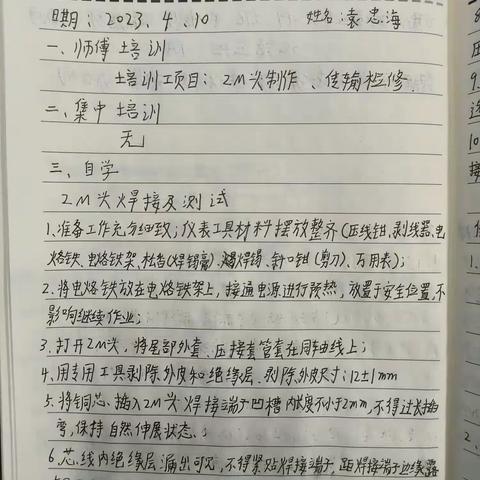 日期: 2023.4.10 姓名:袁忠海
一、师傅培训
培训项目:2M头制作、传输检修.
二、集中培训
无
三、自学
2M头焊接及测试
1、准备工作充分细致;仪表工具材料摆放整齐(压线钳、剥线器、电
烙铁、电烙铁架、松香(焊锡膏)、焊锡、斜口钳(剪刀)、万用表);
2、将电烙铁放在电烙铁架上,接通电源进行预热,放置于安全位置,不
影响继续作业;
3、打开2M头,将尾部外套、压接套管套在同轴线上;
4、用专用工具剥除外皮和绝缘层,剥除外皮尺寸:12±1mm
5、将铜芯、插入2M头焊接端子凹槽内长度不小于2mm,不得过长插
弯,保持自然伸展状态.;
6、芯线内绝缘层漏出可见,不得紧贴焊接端子,距焊接端子边缘露
8
压
9.
选
10
接
1.
2.